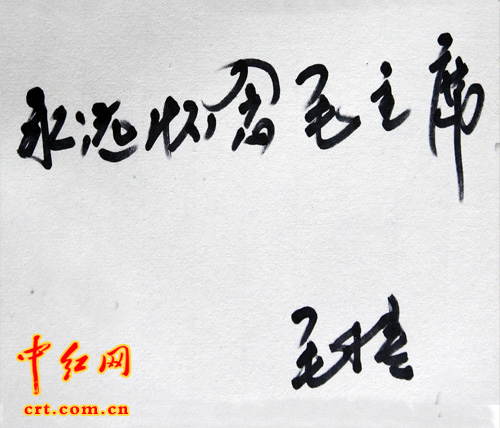 永远怀念毛主席
中红网
crt.com.cn